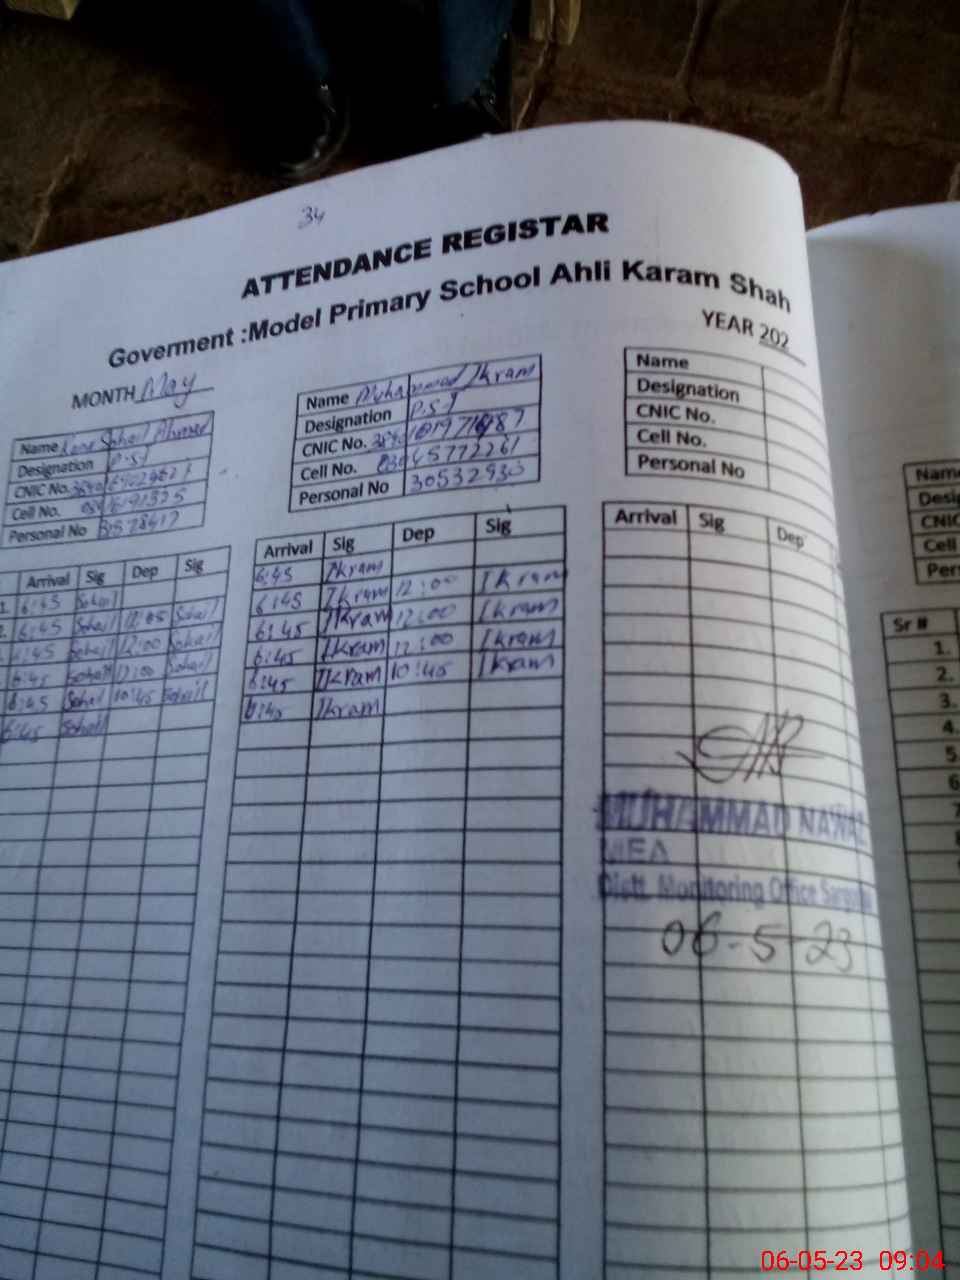 34
ATTENDANCE REGISTAR
Goverment :Model Primary School Ahli Karam Shah
YEAR 202
MONTH May
Name Sohail Ahmad
Designation P.S.T
CNIC No.
Cell No.
Personal No
Name Muhammad Ikram
Designation P.S.T
CNIC No.
Cell No. 03045772261
Personal No 30532930
Name
Designation
CNIC No.
Cell No.
Personal No
Arrival Sig Dep Sig
1. 6:45 Sohail
2. 6:45 Sohail 12:05 Sohail
6:45 Sohail 12:00 Sohail
6:45 Sohail 12:00 Sohail
6:45 Sohail 10:45 Sohail
6:45 Sohail
Arrival Sig Dep Sig
6:45 Ikram
6:45 Ikram 12:00 Ikram
6:45 Ikram 12:00 Ikram
6:45 Ikram 12:00 Ikram
6:45 Ikram 10:45 Ikram
6:45 Ikram
Arrival Sig Dep
MUHAMMAD NAWAZ
MEA
Distt. Monitoring Office
06-5-23
Name
Desig
CNIC
Cell
Pers
Sr #
1.
2.
3.
4.
5.
6
06-05-23 09:04